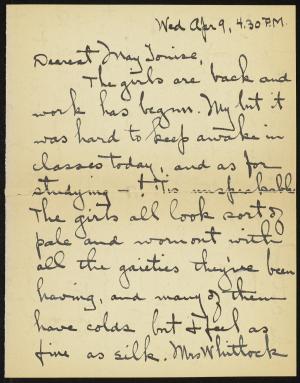 Wed Apr 9, 4.30 P.M.
Dearest May Louise,
The girls are back and
work has begun. My but it
was hard to keep awake in
classes today, and as for
studying — ! 'tis unspeakable.
The girls all look sort of
pale and wornout with
all the gaieties they've been
having, and many of them
have colds but I feel as
fine as silk. Mrs Whittlock